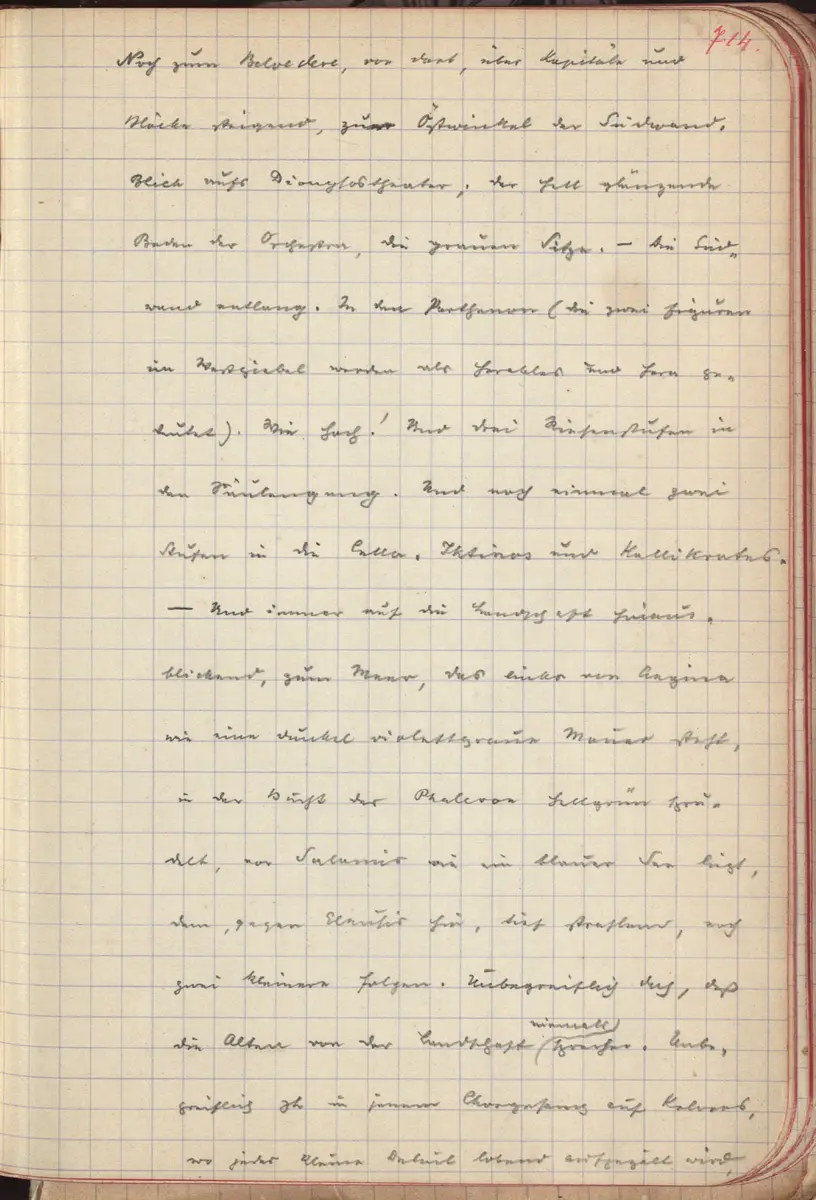 714.
Noch zum Belvedere, von dort, über Kapitäle und
Blöcke steigend, zum Ostwinkel der Südwand.
Blick aufs Dionysostheater, der hell glänzende
Boden der Orchestra, die grauen Sitze. – Die Süd„
wand entlang. In den Parthenon (die zwei Figuren
im Westgiebel werden als Herakles und Hera ge„
deutet). Wie hoch! Und drei Riesenstufen in
den Säulengang. Und noch einmal zwei
Stufen in die Cella. Iktinos und Kallikrates.
– Und immer auf die Landschaft hinaus„
blickend, zum Meer, das links von Aegina
wie eine dunkel violettgraue Mauer steht,
in der Bucht des Phaleron hellgrün spru„
delt, vor Salamis wie ein blauer See liegt,
dem, gegen Eleusis hin, tief strahlend, noch
zwei kleinere folgen. Unbegreiflich doch, daß
die Alten von der Landschaft niemals sprechen. Unbe„
greiflich in jenem Chorgesang auf Kolonos,
wo jedes kleine Detail lobend aufgezält wird,